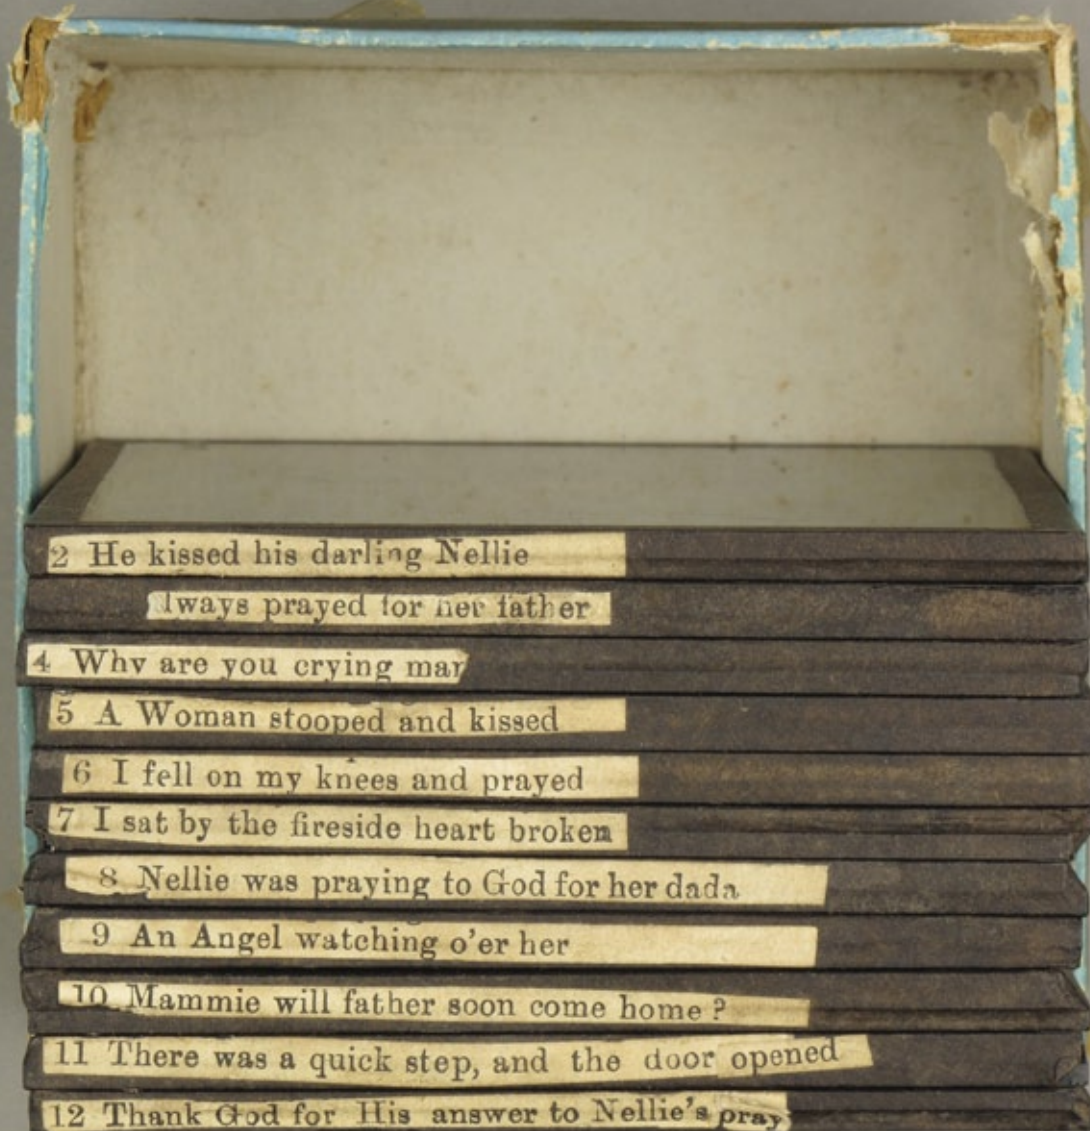 2 He kissed his darling Nellie
lways prayed for her father
4 Why are you crying mar
5 A Woman stooped and kissed
6 I fell on my knees and prayed
7 I sat by the fireside heart broken
8 Nellie was praying to God for her dada
9 An Angel watching o'er her
10 Mammie will father soon come home ?
11 There was a quick step, and the door opened
12 Thank God for His answer to Nellie's pray